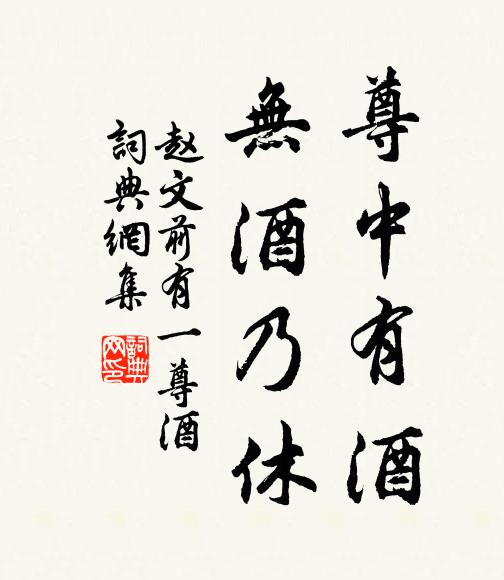 尊中有酒
無酒乃休
赵文前有一尊酒
詞典網集
詞典网印